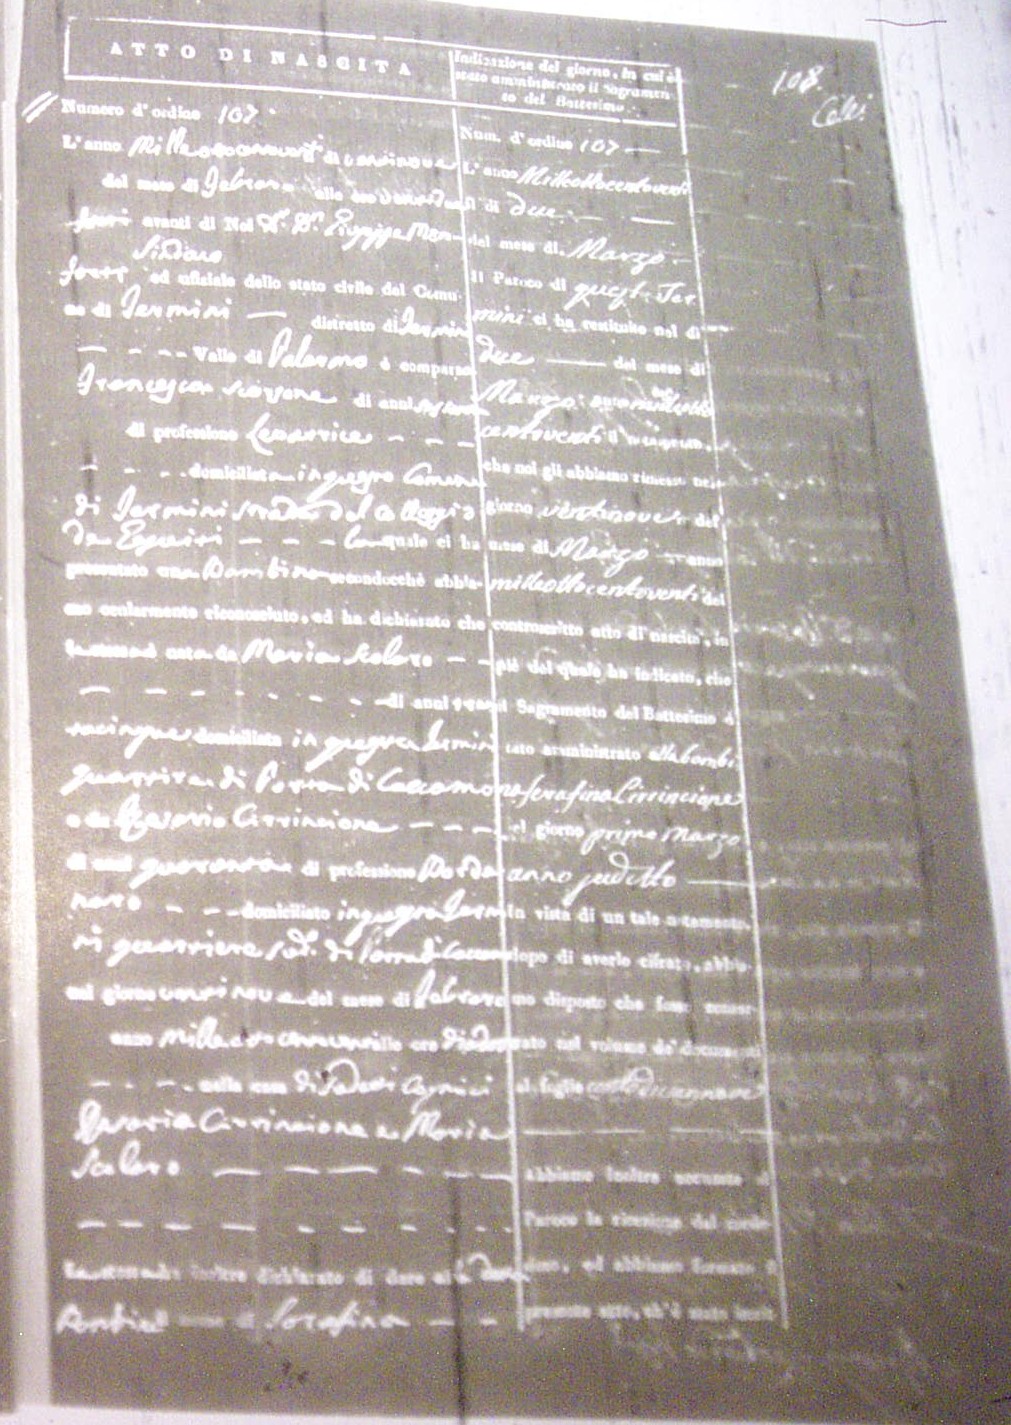 108.
Celi
ATTO DI NASCITA
Numero d'ordine 107.
L'anno Milleottocentoventi di ventinove
del mese di Febraro alle ore
avanti di Noi Dn. Giuseppe Mon-
Sindaco
forti ed ufiziale dello stato civile del Comu-
ne di Termini — distretto di Termini
Valle di Palermo è comparsa
Francesca di anni
di professione Levatrice
domiciliata in questo Comune
di Termini strada del Collegio
De Equiti la quale ci ha
presentato una Bambina secondocchè abbia-
mo ocularmente riconosciuto, ed ha dichiarato che
la stessa è nata da Maria Scolaro
di anni tren
tacinque domiciliata in questa Termini
quartiere di Porta di Caccamo
e da Rosario Cirrincione
di anni quaranta di professione Borda
naro domiciliato in questa Termi
ni quartiere sud.o di Porta di Caccamo
nel giorno ventinove del mese di Febraro
anno milleottocentoventi alle ore
nella casa di detti Coniugi
Rosario Cirrincione e Maria
Scolaro
La stessa ha inoltre dichiarato di dare alla
Bambina il nome di Serafina
Indicazione del giorno, in cui è
stato amministrato il Sagramen-
to del Battesimo.
Num. d'ordine 107
L'anno Milleottocentoventi
il di due
del mese di Marzo
Il Parroco di questa Ter
mini ci ha restituito nel di
due — del mese di
Marzo anno milleotto
centoventi il
che noi gli abbiamo rimesso nel
giorno ventinove del
mese di Marzo — anno
milleottocentoventi del
controscritto atto di nascita, in
piè del quale ha indicato, che
il Sagramento del Battesimo è
stato amministrato alla bambi
na Serafina Cirrincione
nel giorno primo Marzo
anno sudetto
In vista di un tale notamento,
dopo di averlo cifrato, abbia-
mo disposto che fosse conser-
vato nel volume de' documenti
al foglio
abbiamo inoltre accusato al
Paroco la ricezione del mede-
simo, ed abbiamo formato il
presente atto, ch'è stato inscrit-